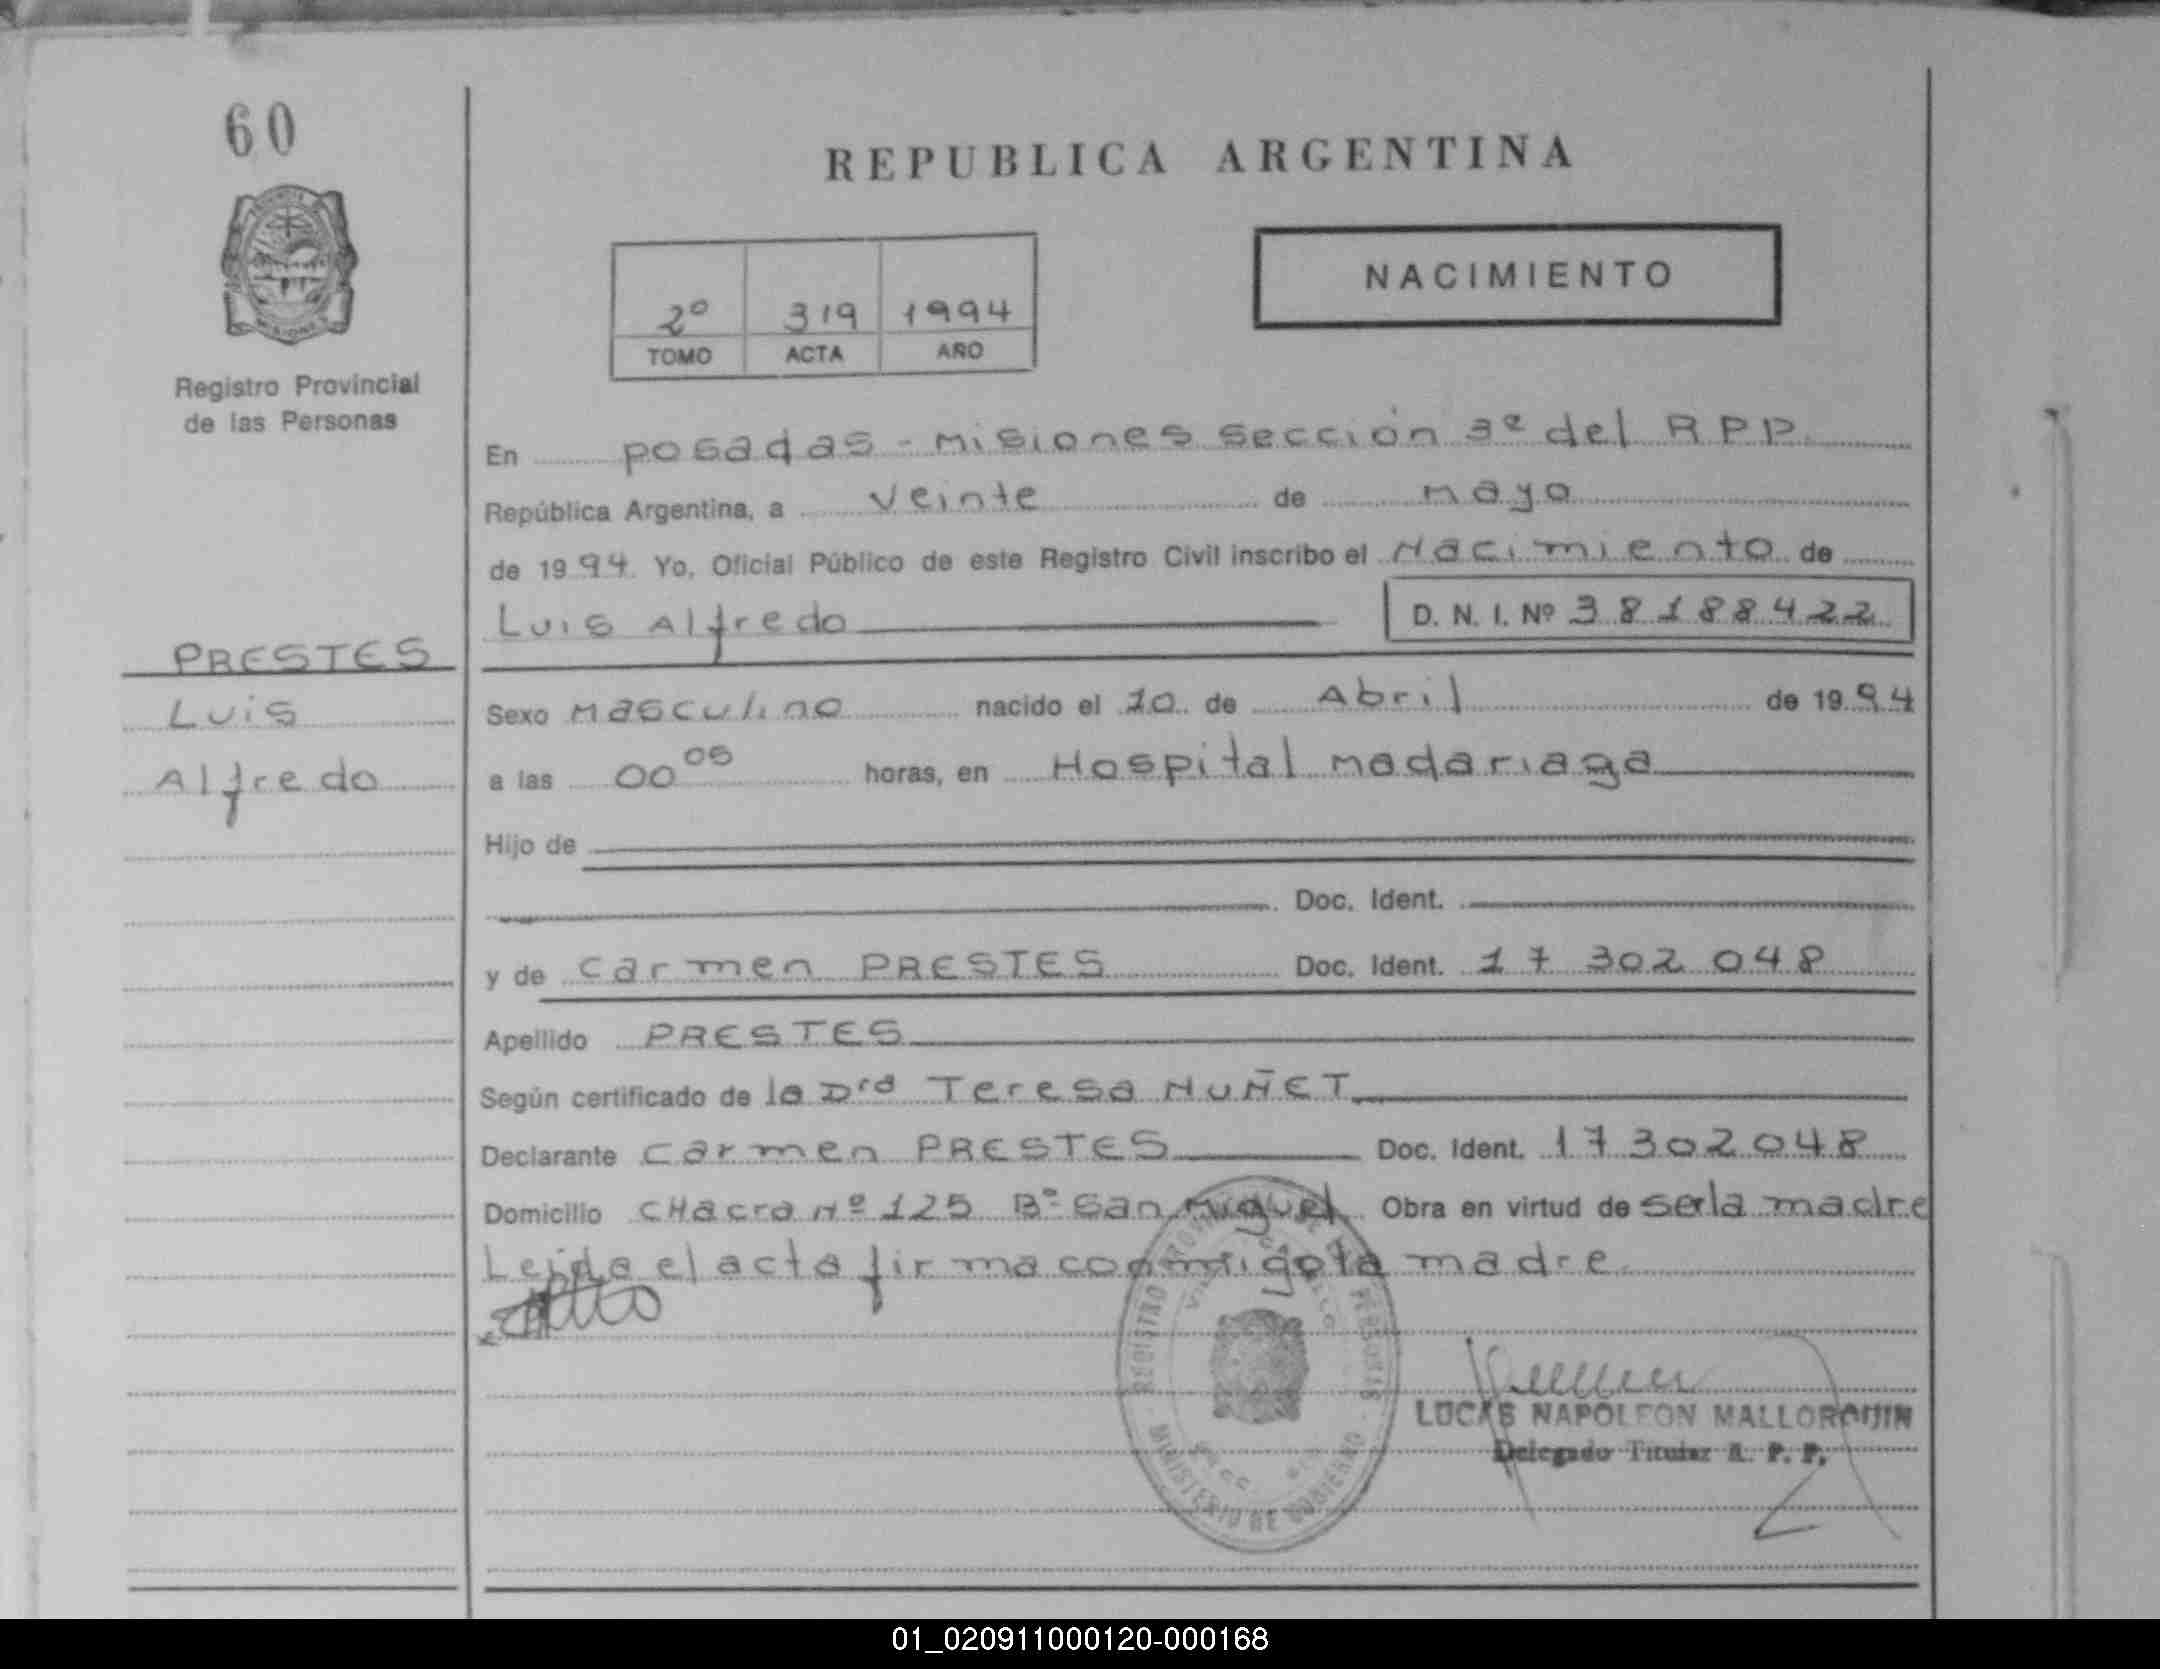 60
REPUBLICA ARGENTINA
NACIMIENTO
2º 319 1994
TOMO ACTA AÑO
Registro Provincial
de las Personas
En Posadas - Misiones Sección 3ª del RPP.
República Argentina, a Veinte de Mayo
de 1994. Yo, Oficial Público de este Registro Civil inscribo el Nacimiento de
Luis Alfredo D. N. I. Nº 38188422
PRESTES
Luis
Alfredo
Sexo Masculino nacido el 20 de Abril de 1994
a las 00 05 horas, en Hospital Madariaga
Hijo de
Doc. Ident.
y de Carmen PRESTES Doc. Ident. 17 302 048
Apellido PRESTES
Según certificado de la Dra Teresa NUÑET
Declarante Carmen PRESTES Doc. Ident. 17302048
Domicilio CHacra Nº 125 Bº San Miguel Obra en virtud de ser la madre
Leida el acta firma conmigo la madre
REGISTRO PROVINCIAL DE LAS PERSONAS
MINISTERIO DE GOBIERNO
LUCAS NAPOLEON MALLORQUIN
Delegado Titular R. P. P.
01_020911000120-000168